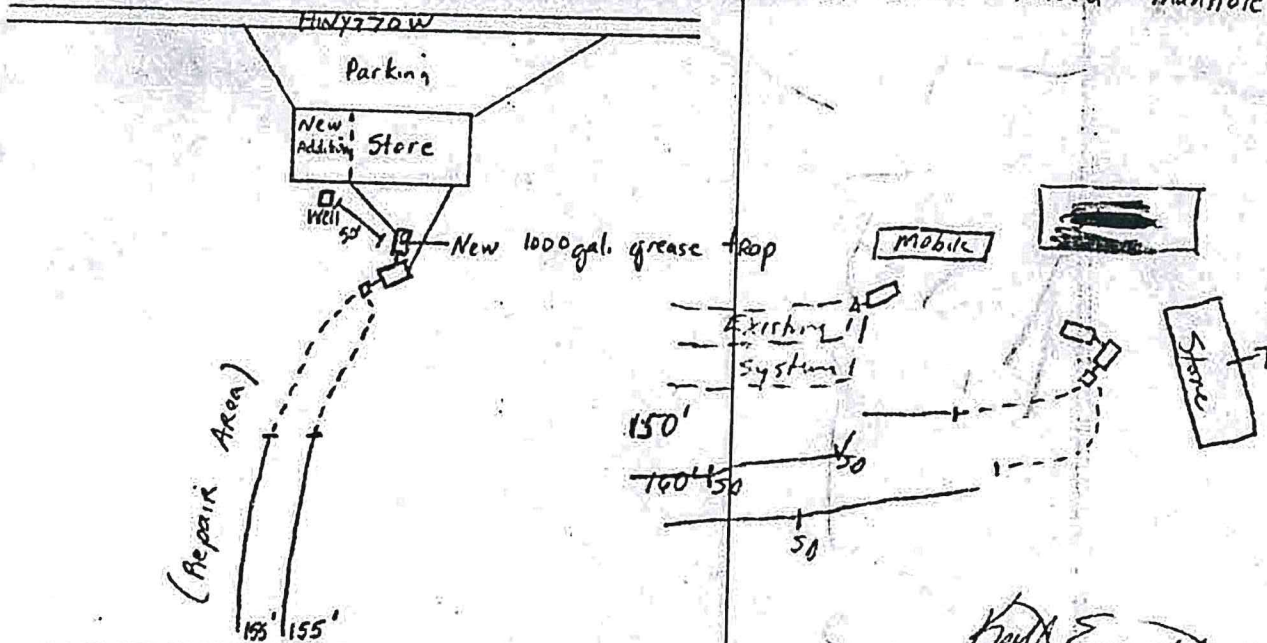 HWY 770 W
Parking
New
Addition
Store
Well
50'
New 1000 gal. grease trap
(Repair Area)
155'
155'
Mobile
Existing
System
150'
160'
50
50
50
Store